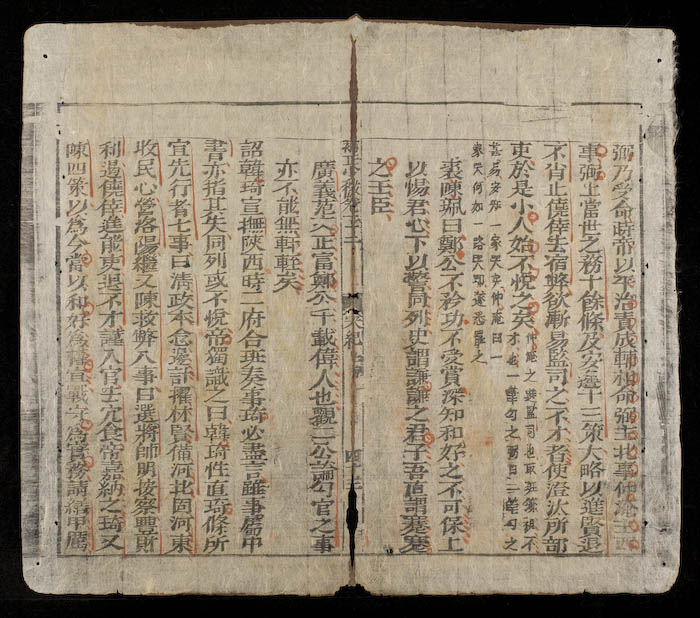 弼乃受命時帝以平治責成輔相命弼主北事仲淹主西
事弼上當世之務十餘條及安邊十三策大略以進賢退
不肖止僥倖去宿弊欲漸易監司之不才者使澄汰所部
吏於是小人始不悅之矣
裴陳珮曰鄭公不矜功不受賞深知和好之不可保上
以惕君心下以警同列史謂謙謙之君子吾直謂蹇蹇
之王臣
廣義范文正富鄭公千載偉人也觀二公論勾官之事
亦不能無軒輊矣
詔韓琦宣撫陝西時二府合班奏事琦必盡言雖事屬中
書亦指其失同列或不悅帝獨識之曰韓琦性直琦條所
宜先行者七事曰清政本念邊計擢材賢備河北固河東
收民心營洛陽繼又陳救弊八事曰選將帥明按察豐財
利遏僥倖進能吏退不才謹入官去冗食帝嘉納之琦又
陳四策以為今當以和好為權宜戰守為實務請繕甲厲